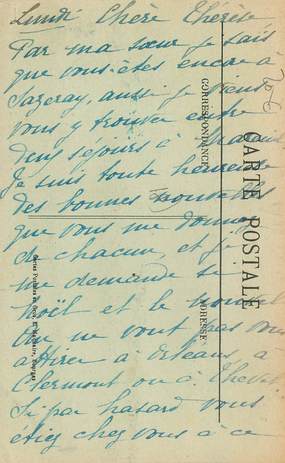 Lundi Chère Thérèse,
Par ma sœur je sais
que vous êtes encore à
Jazeray, aussi je viens
vous y trouver entre
deux séjours à
Je suis toute heureuse
des bonnes nouvelles
que vous me donnez
de chacun, et je
me demande si
Noël et le nouvel
an ne vont pas vous
attirer à Orléans, à
Clermont ou à Thevet
Si par hasard vous
étiez chez vous à ce
CORRESPONDANCE
CARTE POSTALE
ADRESSE